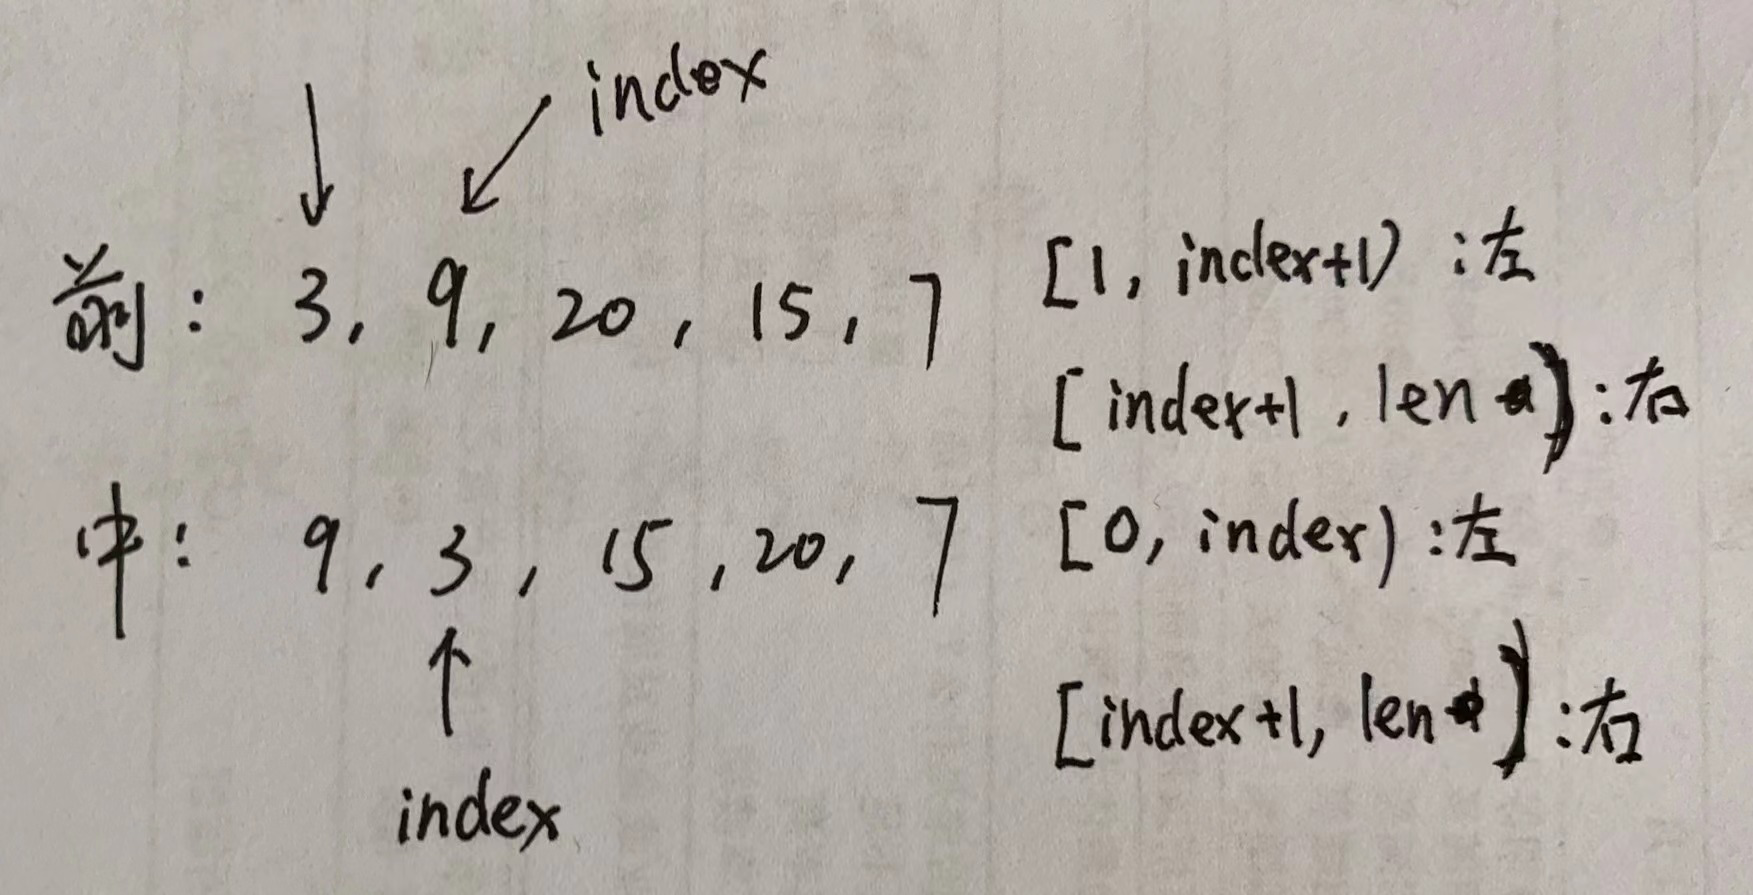 index
前: 3, 9, 20, 15, 7 [1, index+1) :左
[index+1, len) :右
中: 9, 3, 15, 20, 7 [0, index) :左
[index+1, len) :右
index